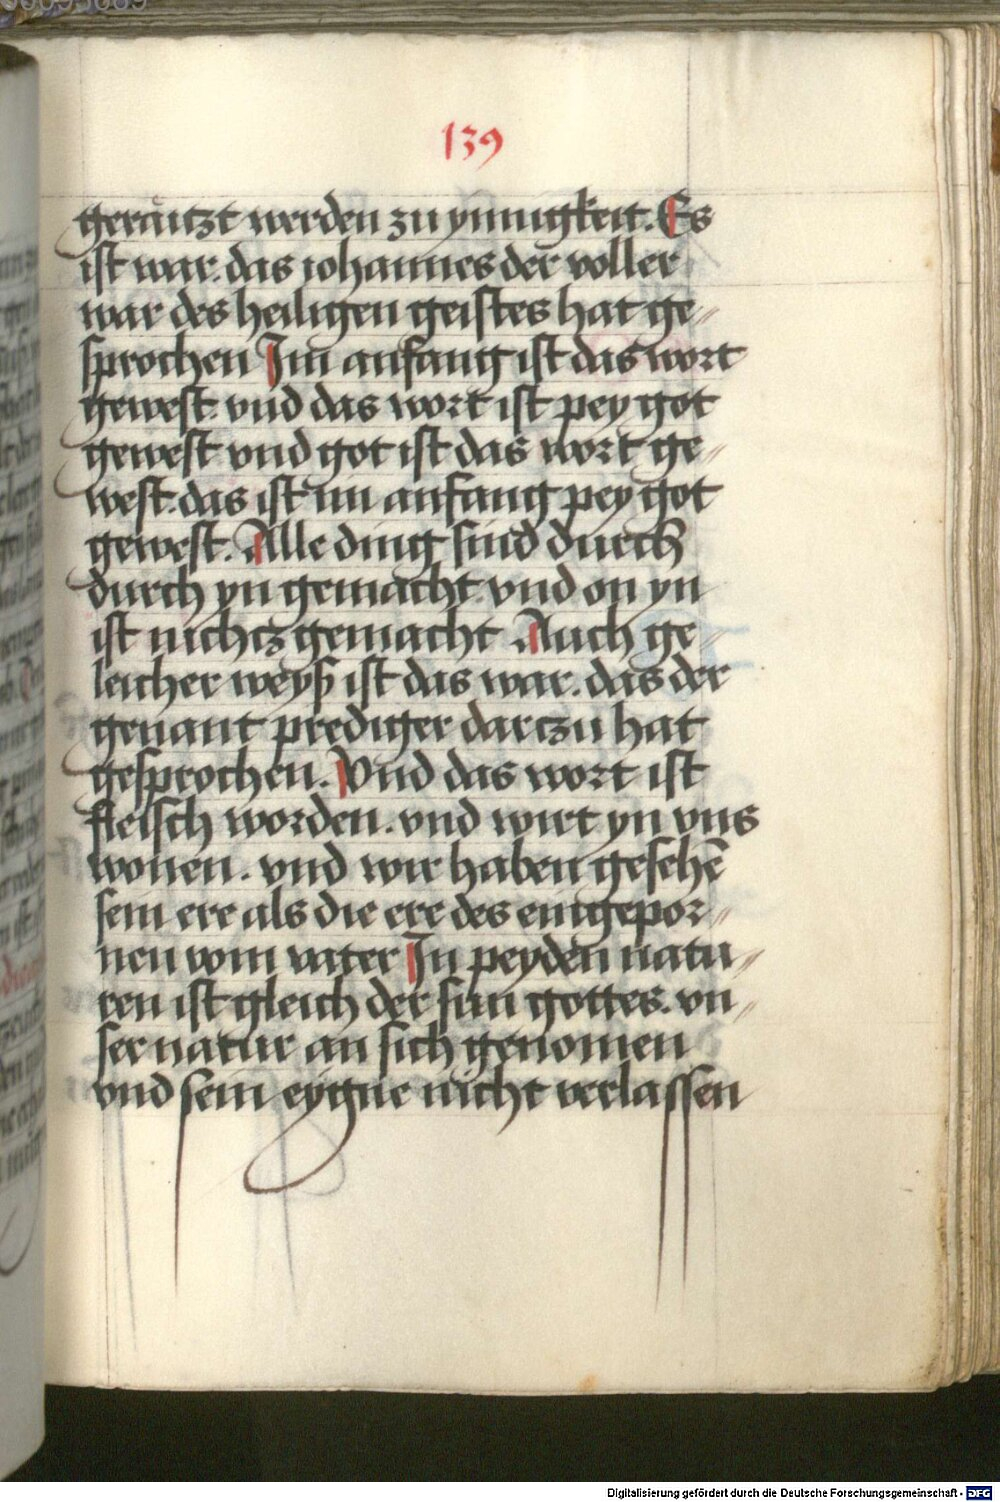 139
geraitzt werden zu ynnigkeit. Es
ist war. das iohannes der voller
war des heiligen geistes hat ge-
sprochen Im anfang ist das wort
gewest. vnd das wort ist pey got
gewest vnd got ist das wort ge-
west. das ist im anfang pey got
gewest. Alle ding sind durch
durch yn gemacht vnd on yn
ist nichtz gemacht Auch ge
leicher weyß ist das war. das der
genant prediger dartzu hat
gesprochen. Vnd das wort ist
fleisch worden. vnd wirt yn vns
wonen. vnd wir haben gesehē
sein ere als die ere des eingepor-
nen vom vater In peyden natu-
ren ist gleich der sun gottes. vn-
ser natur an sich genomen
vnd sein eygne nicht verlassen
Digitalisierung gefördert durch die Deutsche Forschungsgemeinschaft - DFG